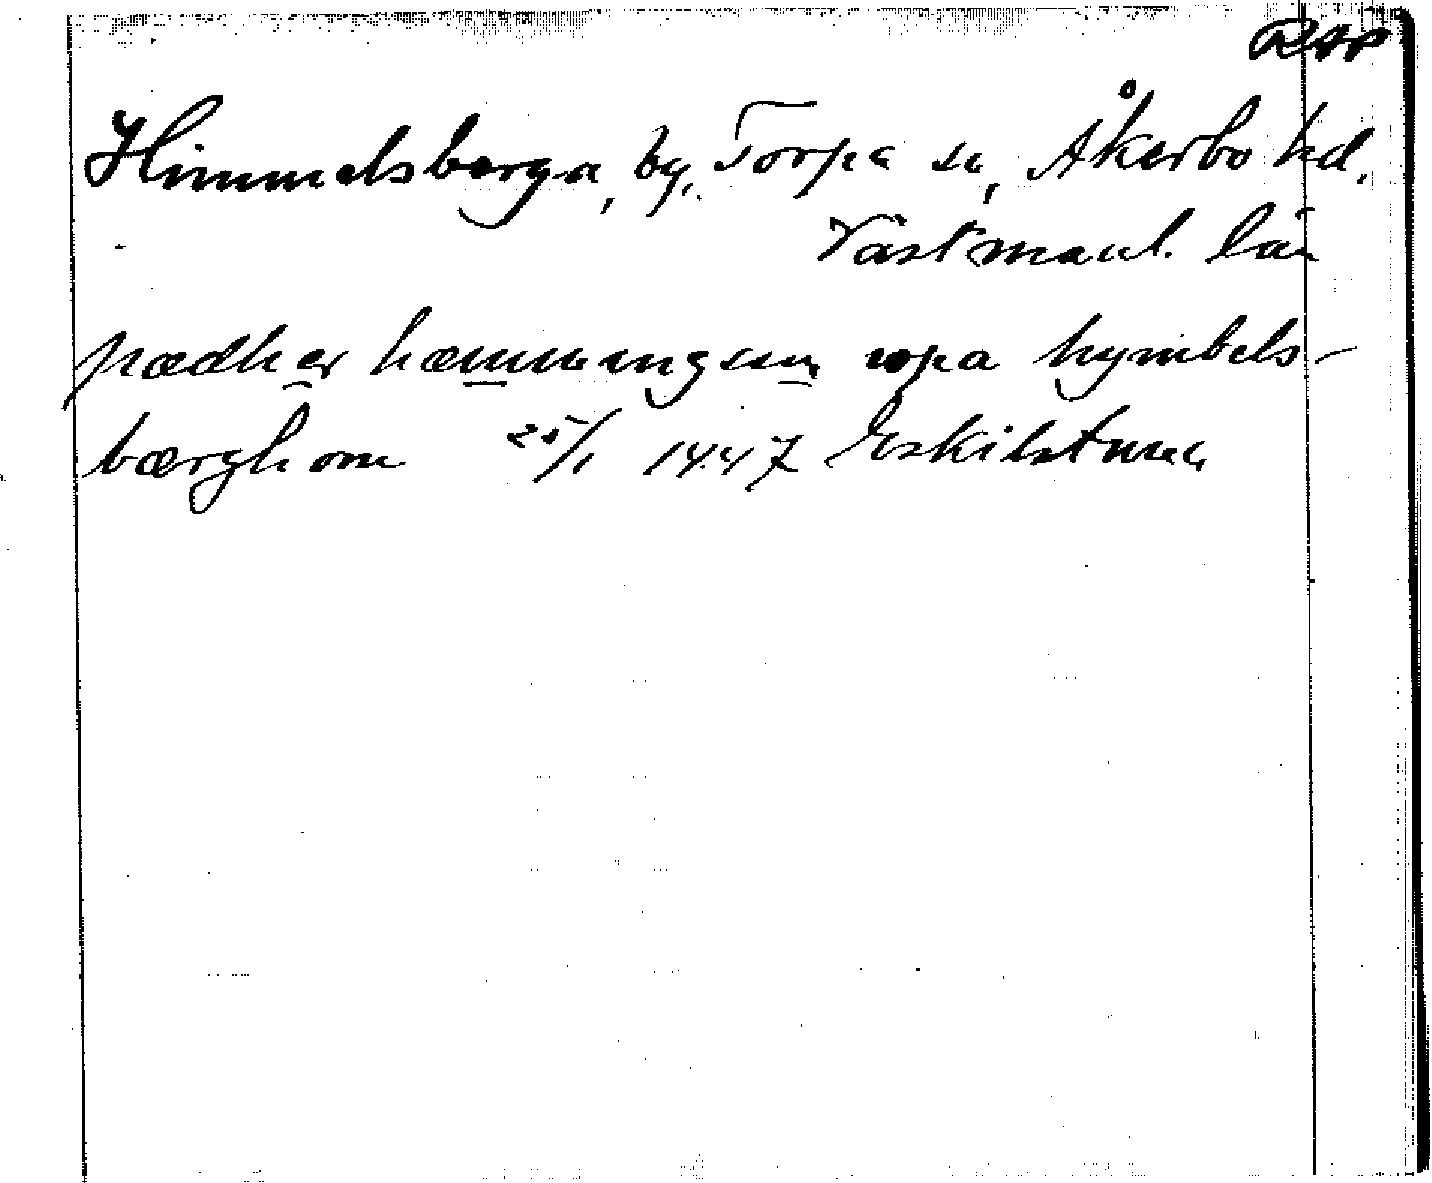 RAP
Himmelsberga, by, Torpa sn, Åkerbo hd.
Västmanl. län
pædher hæmmingsson upa hymbels-
bærghom 25/1 1447 Eskilstuna